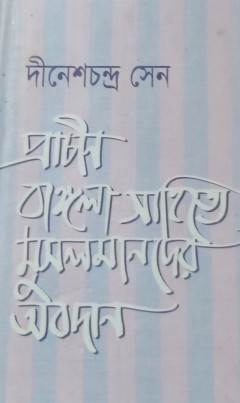 দীনেশচন্দ্র সেন
প্রাচীন
বাঙ্গলা সাহিত্যে
মুসলমানদের
অবদান